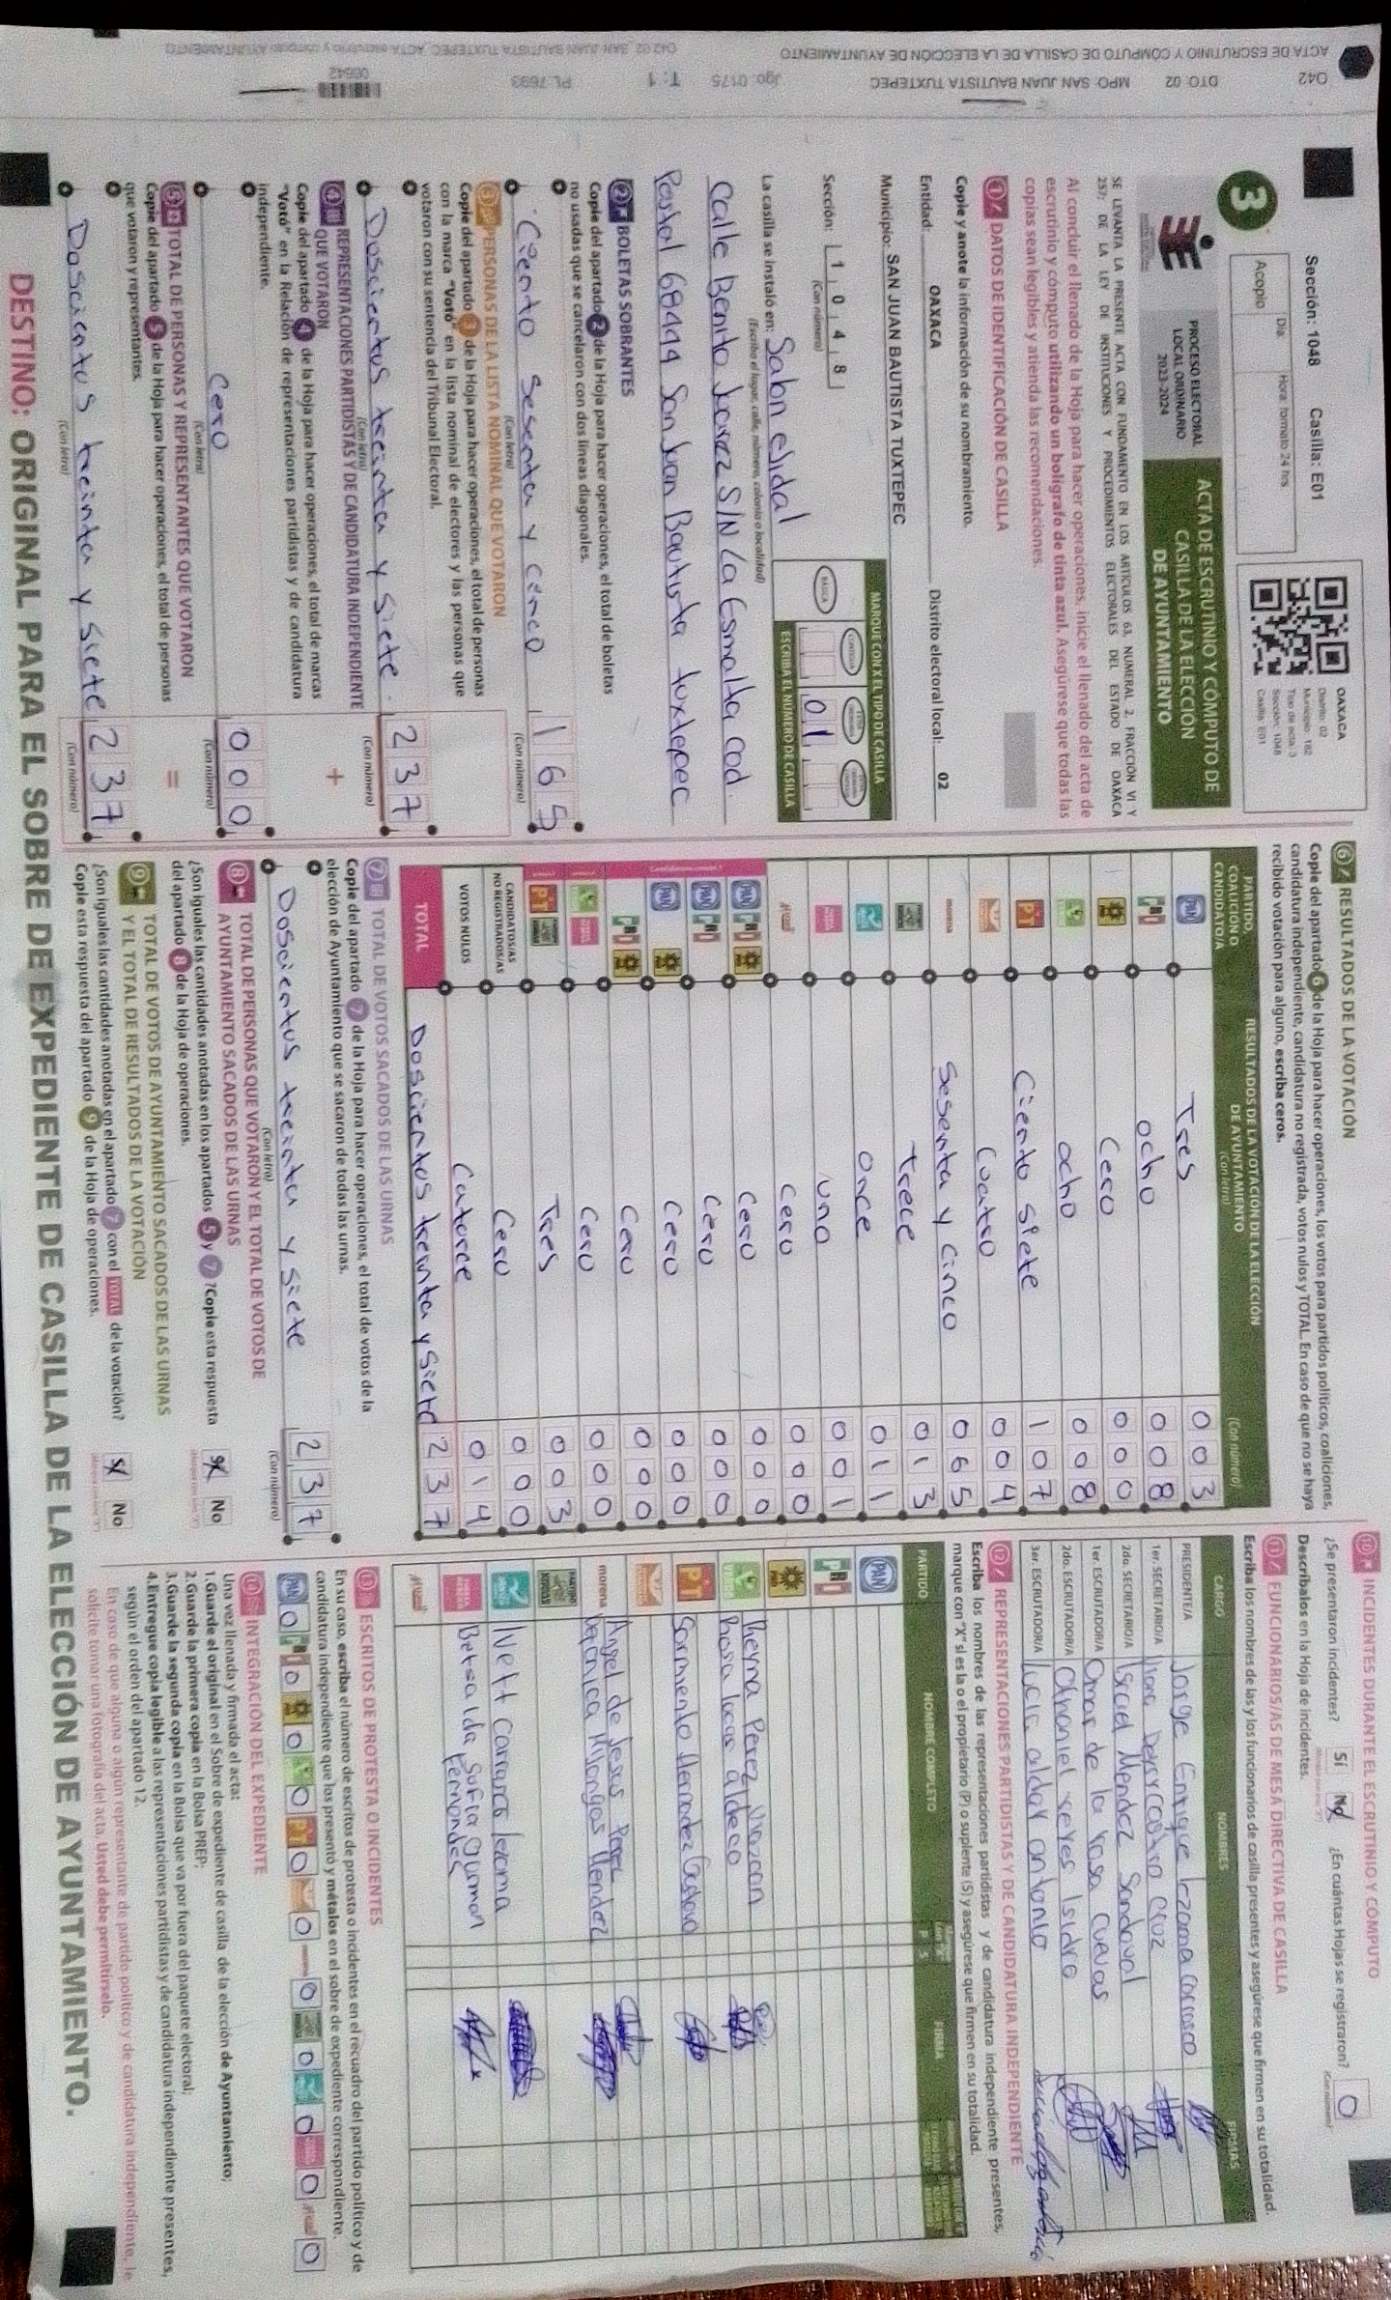 Sección: 1048 Casilla: E01
3
Día: Hora: formato 24 hrs.
Acopio
OAXACA
Distrito: 02
Municipio: 182
Tipo de acta: 3
Sección: 1048
Casilla: E01
PROCESO ELECTORAL
LOCAL ORDINARIO
2023-2024
ACTA DE ESCRUTINIO Y CÓMPUTO DE
CASILLA DE LA ELECCIÓN
DE AYUNTAMIENTO
SE LEVANTA LA PRESENTE ACTA CON FUNDAMENTO EN LOS ARTÍCULOS 63, NUMERAL 2, FRACCIÓN VI Y
257; DE LA LEY DE INSTITUCIONES Y PROCEDIMIENTOS ELECTORALES DEL ESTADO DE OAXACA
Al concluir el llenado de la Hoja para hacer operaciones, inicie el llenado del acta de
escrutinio y cómputo utilizando un bolígrafo de tinta azul. Asegúrese que todas las
copias sean legibles y atienda las recomendaciones.
1 DATOS DE IDENTIFICACIÓN DE CASILLA
Copie y anote la información de su nombramiento.
Entidad: OAXACA Distrito electoral local: 02
Municipio: SAN JUAN BAUTISTA TUXTEPEC
MARQUE CON X EL TIPO DE CASILLA
Sección: 1 0 4 8
(Con número)
BÁSICA
01
ESCRIBA EL NÚMERO DE CASILLA
La casilla se instaló en: Salon ejidal
(Escriba el lugar, calle, número, colonia o localidad)
Calle Benito Juarez S/N La Esmalta Cod.
Postal 68444 San Juan Bautista tuxtepec
2 BOLETAS SOBRANTES
Copie del apartado 2 de la Hoja para hacer operaciones, el total de boletas
no usadas que se cancelaron con dos líneas diagonales.
Ciento sesenta y cinco 1 6 5
(Con letra) (Con número)
3 PERSONAS DE LA LISTA NOMINAL QUE VOTARON
Copie del apartado 3 de la Hoja para hacer operaciones, el total de personas
con la marca "Votó" en la lista nominal de electores y las personas que
votaron con su sentencia del Tribunal Electoral.
Doscientos treinta y siete. 2 3 7
(Con letra) (Con número)
4 REPRESENTACIONES PARTIDISTAS Y DE CANDIDATURA INDEPENDIENTE
QUE VOTARON
+
Copie del apartado 4 de la Hoja para hacer operaciones, el total de marcas
"Votó" en la Relación de representaciones partidistas y de candidatura
independiente.
Cero 0 0 0
(Con letra) (Con número)
5 TOTAL DE PERSONAS Y REPRESENTANTES QUE VOTARON
=
Copie del apartado 5 de la Hoja para hacer operaciones, el total de personas
que votaron y representantes.
Doscientos treinta y siete 2 3 7
(Con letra) (Con número)
6 RESULTADOS DE LA VOTACIÓN
Copie del apartado 6 de la Hoja para hacer operaciones, los votos para partidos políticos, coaliciones,
candidatura independiente, candidatura no registrada, votos nulos y TOTAL. En caso de que no se haya
recibido votación para alguno, escriba ceros.
PARTIDO,
COALICIÓN O
CANDIDATO/A
RESULTADOS DE LA VOTACIÓN DE LA ELECCIÓN
DE AYUNTAMIENTO
(Con letra) (Con número)
PAN Tres 0 0 3
PRI ocho 0 0 8
PRD Cero 0 0 0
ocho 0 0 8
PT Ciento siete 1 0 7
Cuatro 0 0 4
morena Sesenta y cinco 0 6 5
trece 0 1 3
once 0 1 1
uno 0 0 1
Cero 0 0 0
PAN PRI PRD Cero 0 0 0
PAN PRI Cero 0 0 0
PAN PRD Cero 0 0 0
PRI PRD Cero 0 0 0
Cero 0 0 0
PT Tres 0 0 3
CANDIDATOS/AS
NO REGISTRADOS/AS Cero 0 0 0
VOTOS NULOS Catorce 0 1 4
TOTAL Doscientos treinta y siete 2 3 7
7 TOTAL DE VOTOS SACADOS DE LAS URNAS
Copie del apartado 7 de la Hoja para hacer operaciones, el total de votos de la
elección de Ayuntamiento que se sacaron de todas las urnas.
Doscientos treinta y siete 2 3 7
(Con letra) (Con número)
8 TOTAL DE PERSONAS QUE VOTARON Y EL TOTAL DE VOTOS DE
AYUNTAMIENTO SACADOS DE LAS URNAS
¿Son iguales las cantidades anotadas en los apartados 5 y 7? Copie esta respuesta
del apartado 8 de la Hoja de operaciones.
Sí No
9 TOTAL DE VOTOS DE AYUNTAMIENTO SACADOS DE LAS URNAS
Y EL TOTAL DE RESULTADOS DE LA VOTACIÓN
¿Son iguales las cantidades anotadas en el apartado 7 con el TOTAL de la votación?
Copie esta respuesta del apartado 9 de la Hoja de operaciones.
Sí No
10 INCIDENTES DURANTE EL ESCRUTINIO Y CÓMPUTO
¿Se presentaron incidentes? Sí No ¿En cuántas Hojas se registraron? 0
Descríbalos en la Hoja de incidentes.
11 FUNCIONARIOS/AS DE MESA DIRECTIVA DE CASILLA
Escriba los nombres de las y los funcionarios de casilla presentes y asegúrese que firmen en su totalidad.
CARGO NOMBRES FIRMAS
PRESIDENTE/A Jorge Enrique lezama carrasco
1er. SECRETARIO/A
2do. SECRETARIO/A Isrrael Mendez Sandoval
1er. ESCRUTADOR/A Omar de la rosa cuevas
2do. ESCRUTADOR/A Othoniel reyes Isidro
3er. ESCRUTADOR/A lucia alday antonio
12 REPRESENTACIONES PARTIDISTAS Y DE CANDIDATURA INDEPENDIENTE
Escriba los nombres de las representaciones partidistas y de candidatura independiente presentes,
marque con "X" si es la o el propietario (P) o suplente (S) y asegúrese que firmen en su totalidad.
PARTIDO NOMBRE COMPLETO P S FIRMA
PAN
PRI
PRD
Reyna Perez
Rosa lucas aldeco
PT Sarmiento Hernandez
morena Angel de Jesus Perez
Veronica Mendez
Ivett Carranza lezama
Betsaida Sofia Guzman
Fernandez
13 ESCRITOS DE PROTESTA O INCIDENTES
En su caso, escriba el número de escritos de protesta o incidentes en el recuadro del partido político y de
candidatura independiente que los presentó y métalos en el sobre de expediente correspondiente.
PAN 0 PRI 0 PRD 0 0 PT 0 0 0 0 0 0 0
14 INTEGRACIÓN DEL EXPEDIENTE
Una vez llenada y firmada el acta:
1. Guarde el original en el Sobre de expediente de casilla de la elección de Ayuntamiento;
2. Guarde la primera copia en la Bolsa PREP;
3. Guarde la segunda copia en la Bolsa que va por fuera del paquete electoral;
4. Entregue copia legible a las representaciones partidistas y de candidatura independiente presentes,
según el orden del apartado 12.
En caso de que alguna o algún representante de partido político y de candidatura independiente, le
solicite tomar una fotografía del acta, Usted debe permitírselo.
DESTINO: ORIGINAL PARA EL SOBRE DE EXPEDIENTE DE CASILLA DE LA ELECCIÓN DE AYUNTAMIENTO.
042 DTO: 02 MPO: SAN JUAN BAUTISTA TUXTEPEC Jgo: 0175 T: 1 PL: 7693
ACTA DE ESCRUTINIO Y CÓMPUTO DE CASILLA DE LA ELECCIÓN DE AYUNTAMIENTO